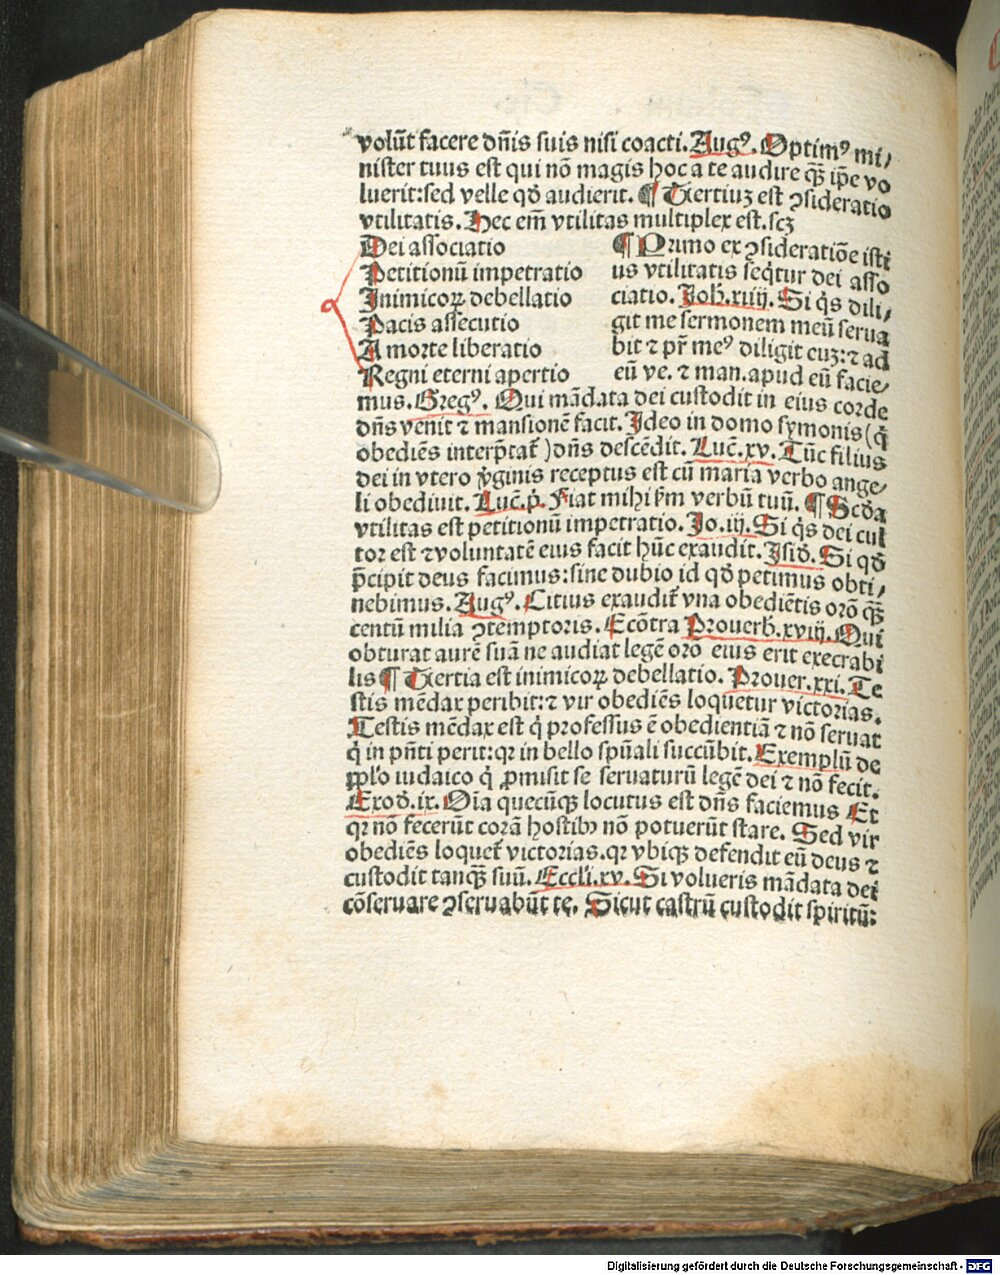 volūt facere dn̄is suis nisi coacti. Augꝰ. Optimꝰ mi/
nister tuus est qui nō magis hoc a te audire qꝫ̄ ip̄e vo
luerit: sed velle qď audierit. ¶ Tertiuꝫ est ꝯsideratio
vtilitatis. Hec em̄ vtilitas multiplex est. scꝫ
Dei associatio
Petitionū impetratio
Inimicoꝝ debellatio
Pacis assecutio
A morte liberatio
Regni eterni apertio
¶ Primo ex ꝯsideratiōe isti
us vtilitatis seq̄tur dei asso
ciatio. Joh̄. xiiij. Si q̇s dili/
git me sermonem meū serua
bit ⁊ pr̄ meꝰ diliget euꝫ: ⁊ ad
eū ve. ⁊ man. apud eū facie/
mus. Gregꝰ. Qui mādata dei custodit in eius corde
dn̄s venit ⁊ mansionē facit. Ideo in domo symonis (q̇
obediēs interp̄tat᷑) dn̄s descēdit. Luc̄. xv. Tūc filius
dei in vtero v̇ginis receptus est cū maria verbo ange/
li obediuit. Luc̄. ṗ. Fiat mihi s̄m verbū tuū. ¶ Scďa
vtilitas est petitionū impetratio. Jo. iij. Si q̇s dei cul
tor est ⁊ voluntatē eius facit hūc exaudit. Isid̄. Si qď
p̄cipit deus facimus: sine dubio id qď petimus obti/
nebimus. Augꝰ. Citius exaudit᷑ vna obediētis orō qꝫ̄
centū milia ꝯtemptoris. Ecōtra Prouerb̄. xviij. Qui
obturat aurē suā ne audiat legē orō eius erit execrabi
lis ¶ Tertia est inimicoꝝ debellatio. Prouer. xxi. Te
stis mēdax peribit: ⁊ vir obediēs loquetur victorias.
Testis mēdax est q̇ professus ē obedientiā ⁊ nō seruat
q̇ in pn̄ti perit: qꝛ in bello spūali succūbit. Exemplū de
pp̄lo iudaico q̇ ꝓmisit se seruaturū legē dei ⁊ nō fecit.
Exod̄. ix. Oīa quecūqꝫ locutus est dn̄s faciemus Et
qꝛ nō fecerūt corā hostibꝰ nō potuerūt stare. Sed vir
obediēs loquet᷑ victorias. qꝛ vbiqꝫ defendit eū deus ⁊
custodit tanqꝫ̄ suū. Eccl̄i. xv. Si volueris mādata dei
cōseruare ꝯseruabūt te. Sicut castrū custodit spiritū:
Digitalisierung gefördert durch die Deutsche Forschungsgemeinschaft - DFG